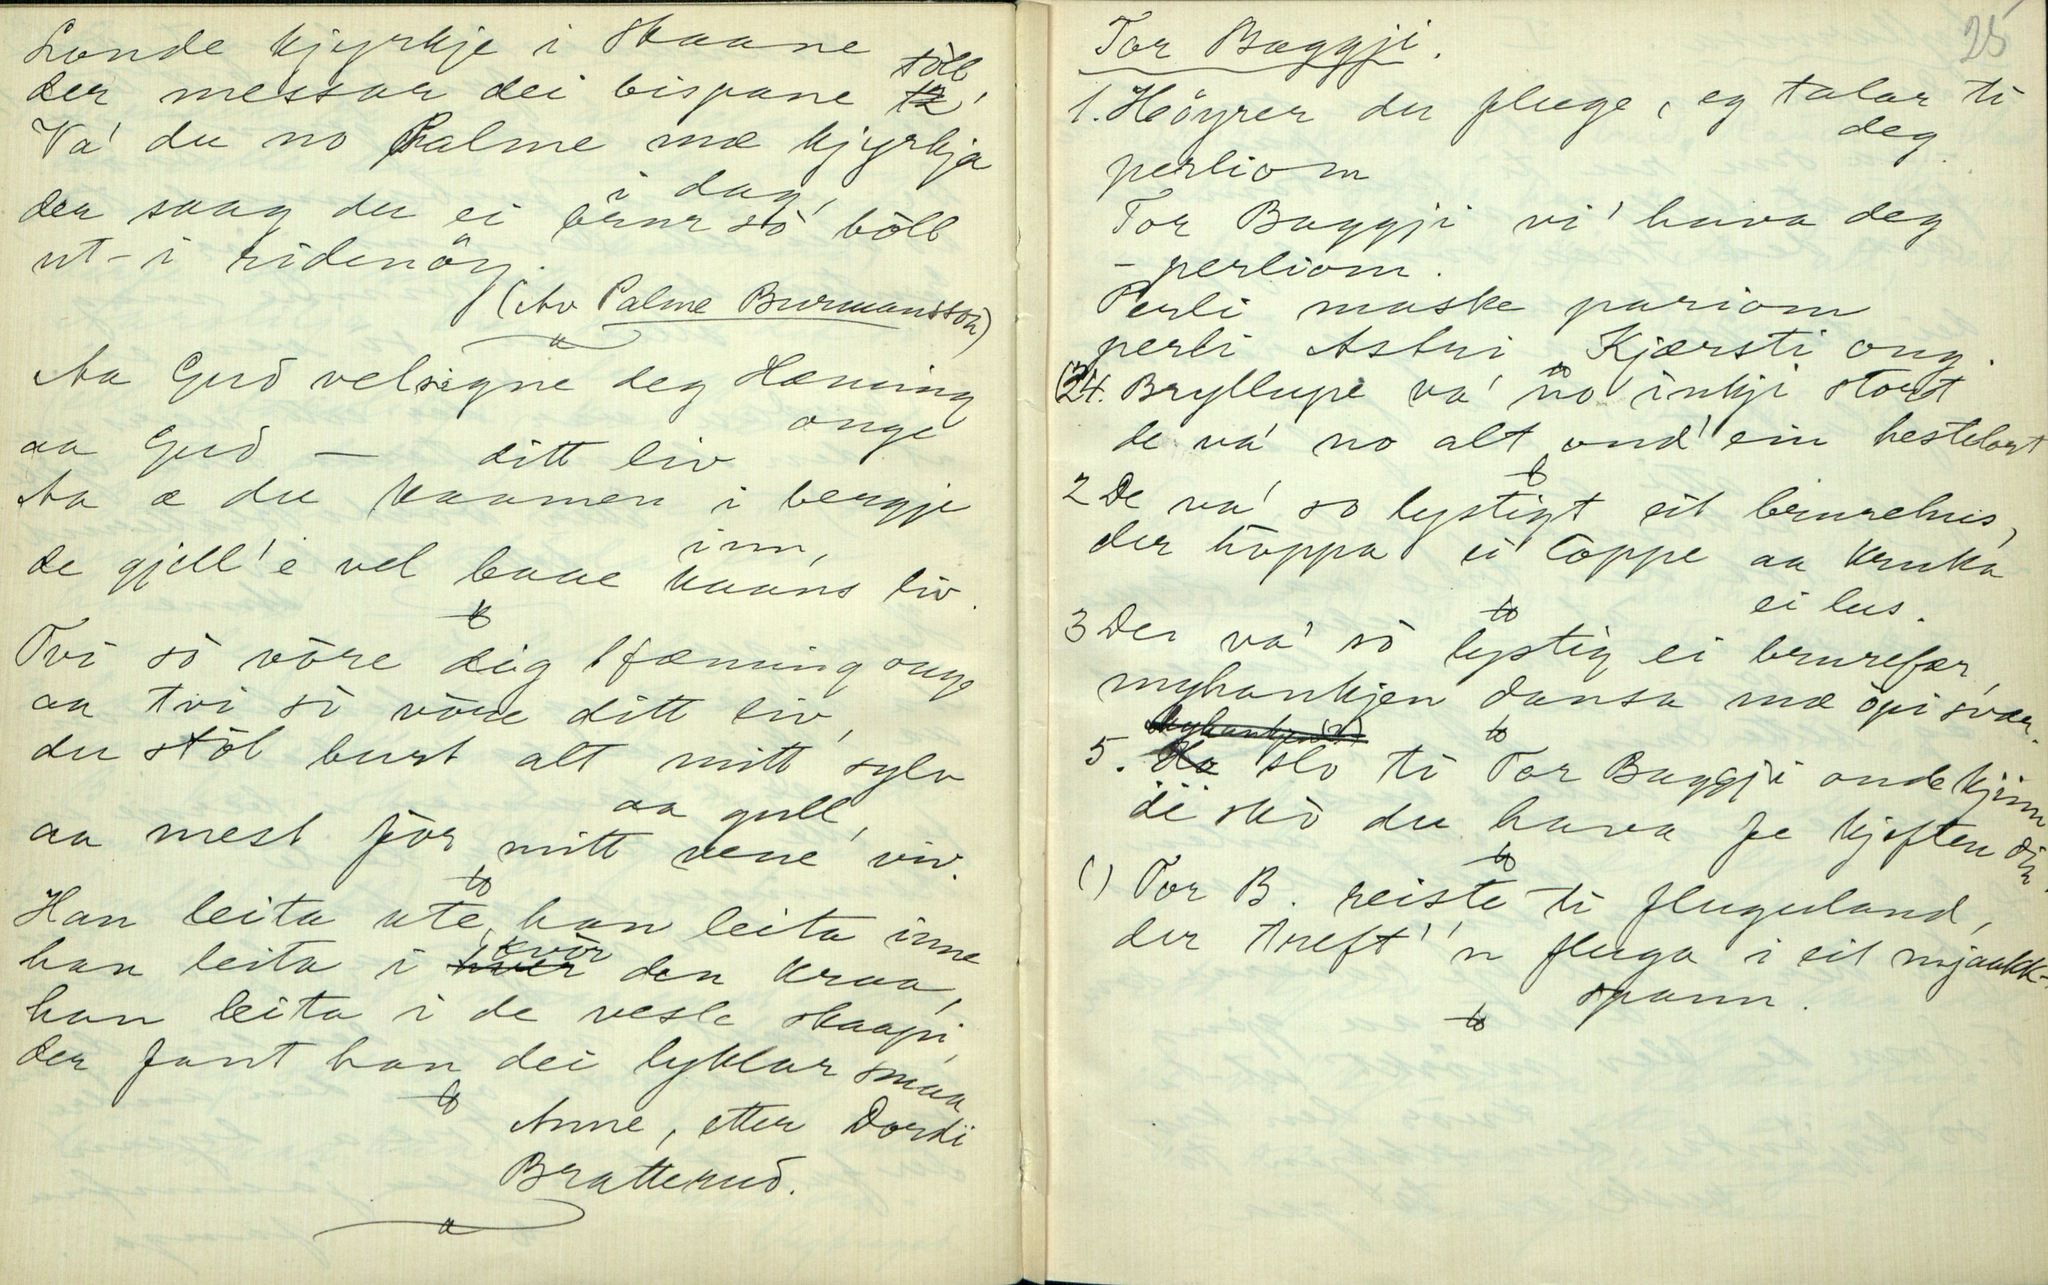 Londe kjyrkje i Skaane
der messar dei bispane töll
Va' du no Palme mæ kjyrkja
i dag,
der saag du ei brur sò böll
ut-i ridenöy.
(Av Palme Burmansson)
Aa Gud velsigne deg Hæming
onge
aa Gud — ditt liv
Aa æ du kaamen i bergje
inn,
de gjell' e vel baae kaans liv.
Tvi sò vöre dig Hæming onge
aa tvi sò vöre ditt liv,
du stòl burt alt mitt sylv
aa gull,
aa mest fòr mitt vene viv.
Han leita ute, han leita inne
han leita i kvòr den kraa,
han leita i de vesle skaapi,
der fant han dei lyklar smaa
Anne, etter Dordi
Bratterud.
25
Tor Baggji.
1. Höyrer du fluge, eg talar ti
deg
perliom
Tor Baggji vi' hava deg
- perliom.
Perli maske pariom
perli Astri, Kjærsti ong.
4. Bryllupe va' no inkji stort
de va' no alt ond' ein hestelort
2 De va' so lystigt eit brurehus,
der hòppa ei loppe aa kruka
ei lus.
3 Der va' sò lystig ei brurefær,
myhankjen dansa mæ òpi svær.
5. slo ti Tor Baggji onde kjinn
de skò du hava fe kjeften din
() Tor B. reiste ti fluguland,
der treft' 'n fluga i eit mjaalk-
spann.